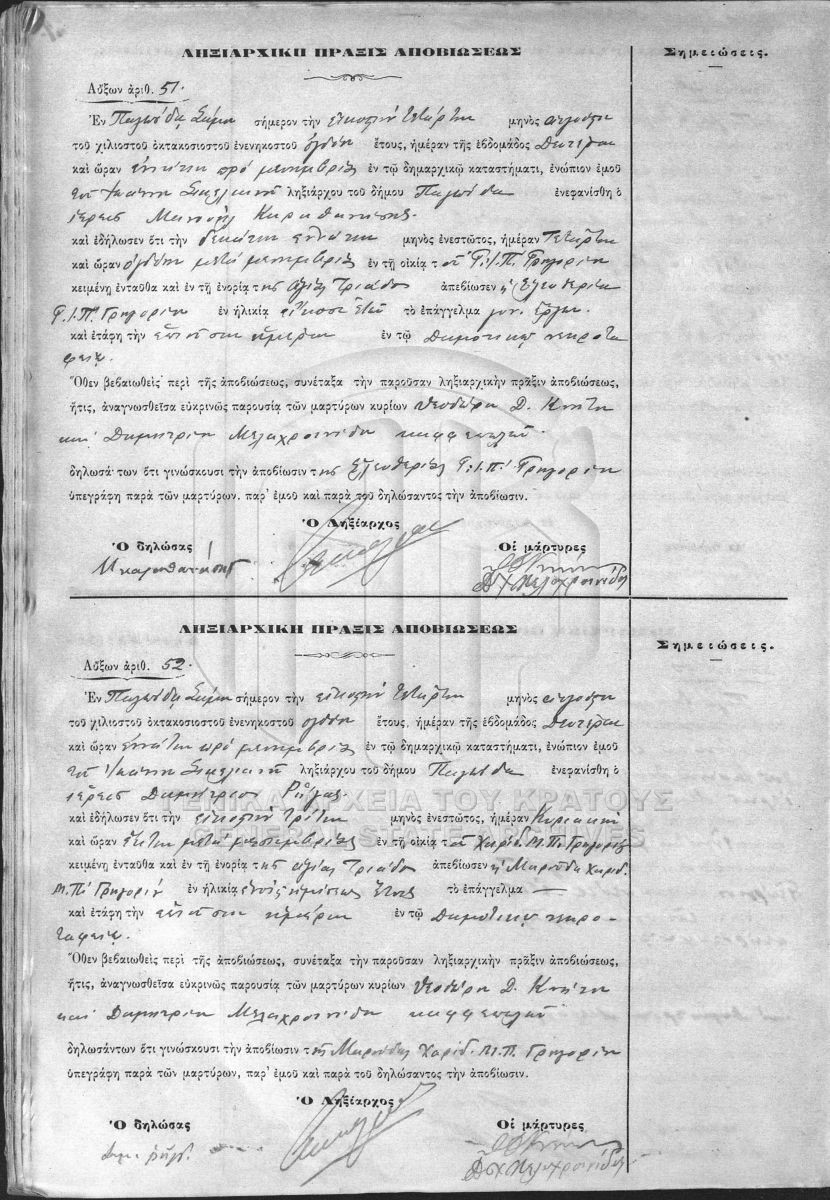 ΛΗΞΙΑΡΧΙΚΗ ΠΡΑΞΙΣ ΑΠΟΒΙΩΣΕΩΣ
Σημειώσεις.
Αὔξων ἀριθ. 51.
Ἐν σήμερον τὴν εἰκοστὴν τετάρτην μηνὸς
τοῦ χιλιοστοῦ ὀκτακοσιοστοῦ ἐνενηκοστοῦ ὀγδόου ἔτους, ἡμέραν τῆς ἑβδομάδος Δευτέραν
καὶ ὥραν ἐννάτην πρὸ μεσημβρίας ἐν τῷ δημαρχικῷ καταστήματι, ἐνώπιον ἐμοῦ
τοῦ Ἰωάννη ληξιάρχου τοῦ δήμου ἐνεφανίσθη ὁ
ἱερεὺς Μανουὴλ Καραθανάσης.
καὶ ἐδήλωσεν ὅτι τὴν δεκάτην ἐννάτην μηνὸς ἐνεστῶτος, ἡμέραν Τετάρτην
καὶ ὥραν ὀγδόην μετὰ μεσημβρίας ἐν τῇ οἰκίᾳ τοῦ Γ.Ι.Π. Γρηγορίου
κειμένῃ ἐνταῦθα καὶ ἐν τῇ ἐνορίᾳ τῆς ἁγίας Τριάδος ἀπεβίωσεν ἡ Ἐλευθερία
Γ.Ι.Π. Γρηγορίου ἐν ἡλικίᾳ εἴκοσι ἐτῶν τὸ ἐπάγγελμα
καὶ ἐτάφη τὴν ἐπιοῦσαν ἡμέραν ἐν τῷ Δημοτικῷ νεκροτα
φείῳ.
Ὅθεν βεβαιωθεὶς περὶ τῆς ἀποβιώσεως, συνέταξα τὴν παροῦσαν ληξιαρχικὴν πρᾶξιν ἀποβιώσεως,
ἥτις, ἀναγνωσθεῖσα εὐκρινῶς παρουσίᾳ τῶν μαρτύρων κυρίων Θεοδώρου Δ.
καὶ Δημητρίου Μελαχροινίδη καφφεπώλου.
δηλωσάντων ὅτι γινώσκουσι τὴν ἀποβίωσιν τῆς Ἐλευθερίας Γ.Ι.Π. Γρηγορίου
ὑπεγράφη παρὰ τῶν μαρτύρων, παρ' ἐμοῦ καὶ παρὰ τοῦ δηλώσαντος τὴν ἀποβίωσιν.
Ὁ Ληξίαρχος
Ὁ δηλώσας
Οἱ μάρτυρες
Μ Καραθανάσης
Μελαχροινίδης
ΛΗΞΙΑΡΧΙΚΗ ΠΡΑΞΙΣ ΑΠΟΒΙΩΣΕΩΣ
Σημειώσεις.
Αὔξων ἀριθ. 52.
Ἐν σήμερον τὴν εἰκοστὴν τετάρτην μηνὸς
τοῦ χιλιοστοῦ ὀκτακοσιοστοῦ ἐνενηκοστοῦ ὀγδόου ἔτους, ἡμέραν τῆς ἑβδομάδος Δευτέραν
καὶ ὥραν ἐννάτην πρὸ μεσημβρίας ἐν τῷ δημαρχικῷ καταστήματι, ἐνώπιον ἐμοῦ
τοῦ Ἰωάννη ληξιάρχου τοῦ δήμου ἐνεφανίσθη ὁ
ἱερεὺς Δημήτριος Ῥήγας.
ΓΕΝΙΚΑ ΑΡΧΕΙΑ ΤΟΥ ΚΡΑΤΟΥΣ
καὶ ἐδήλωσεν ὅτι τὴν εἰκοστὴν τρίτην μηνὸς ἐνεστῶτος, ἡμέραν Κυριακὴν
GENERAL STATE ARCHIVES
καὶ ὥραν ἕκτην μετὰ μεσημβρίας ἐν τῇ οἰκίᾳ τοῦ Χαριδ. Μ.Π. Γρηγορίου
κειμένῃ ἐνταῦθα καὶ ἐν τῇ ἐνορίᾳ τῆς ἁγίας Τριάδος ἀπεβίωσεν ἡ Μαρούδα Χαριδ.
Μ.Π. Γρηγορίου ἐν ἡλικίᾳ ἑνὸς ἡμίσεως ἔτους τὸ ἐπάγγελμα —
καὶ ἐτάφη τὴν ἐπιοῦσαν ἡμέραν ἐν τῷ Δημοτικῷ νεκρο-
ταφείῳ.
Ὅθεν βεβαιωθεὶς περὶ τῆς ἀποβιώσεως, συνέταξα τὴν παροῦσαν ληξιαρχικὴν πρᾶξιν ἀποβιώσεως,
ἥτις, ἀναγνωσθεῖσα εὐκρινῶς παρουσίᾳ τῶν μαρτύρων κυρίων Θεοδώρου Δ.
καὶ Δημητρίου Μελαχροινίδη καφφεπώλου
δηλωσάντων ὅτι γινώσκουσι τὴν ἀποβίωσιν τῆς Μαρούδας Χαριδ. Μ.Π. Γρηγορίου
ὑπεγράφη παρὰ τῶν μαρτύρων, παρ' ἐμοῦ καὶ παρὰ τοῦ δηλώσαντος τὴν ἀποβίωσιν.
Ὁ Ληξίαρχος
Ὁ δηλώσας
Οἱ μάρτυρες
Μελαχροινίδης